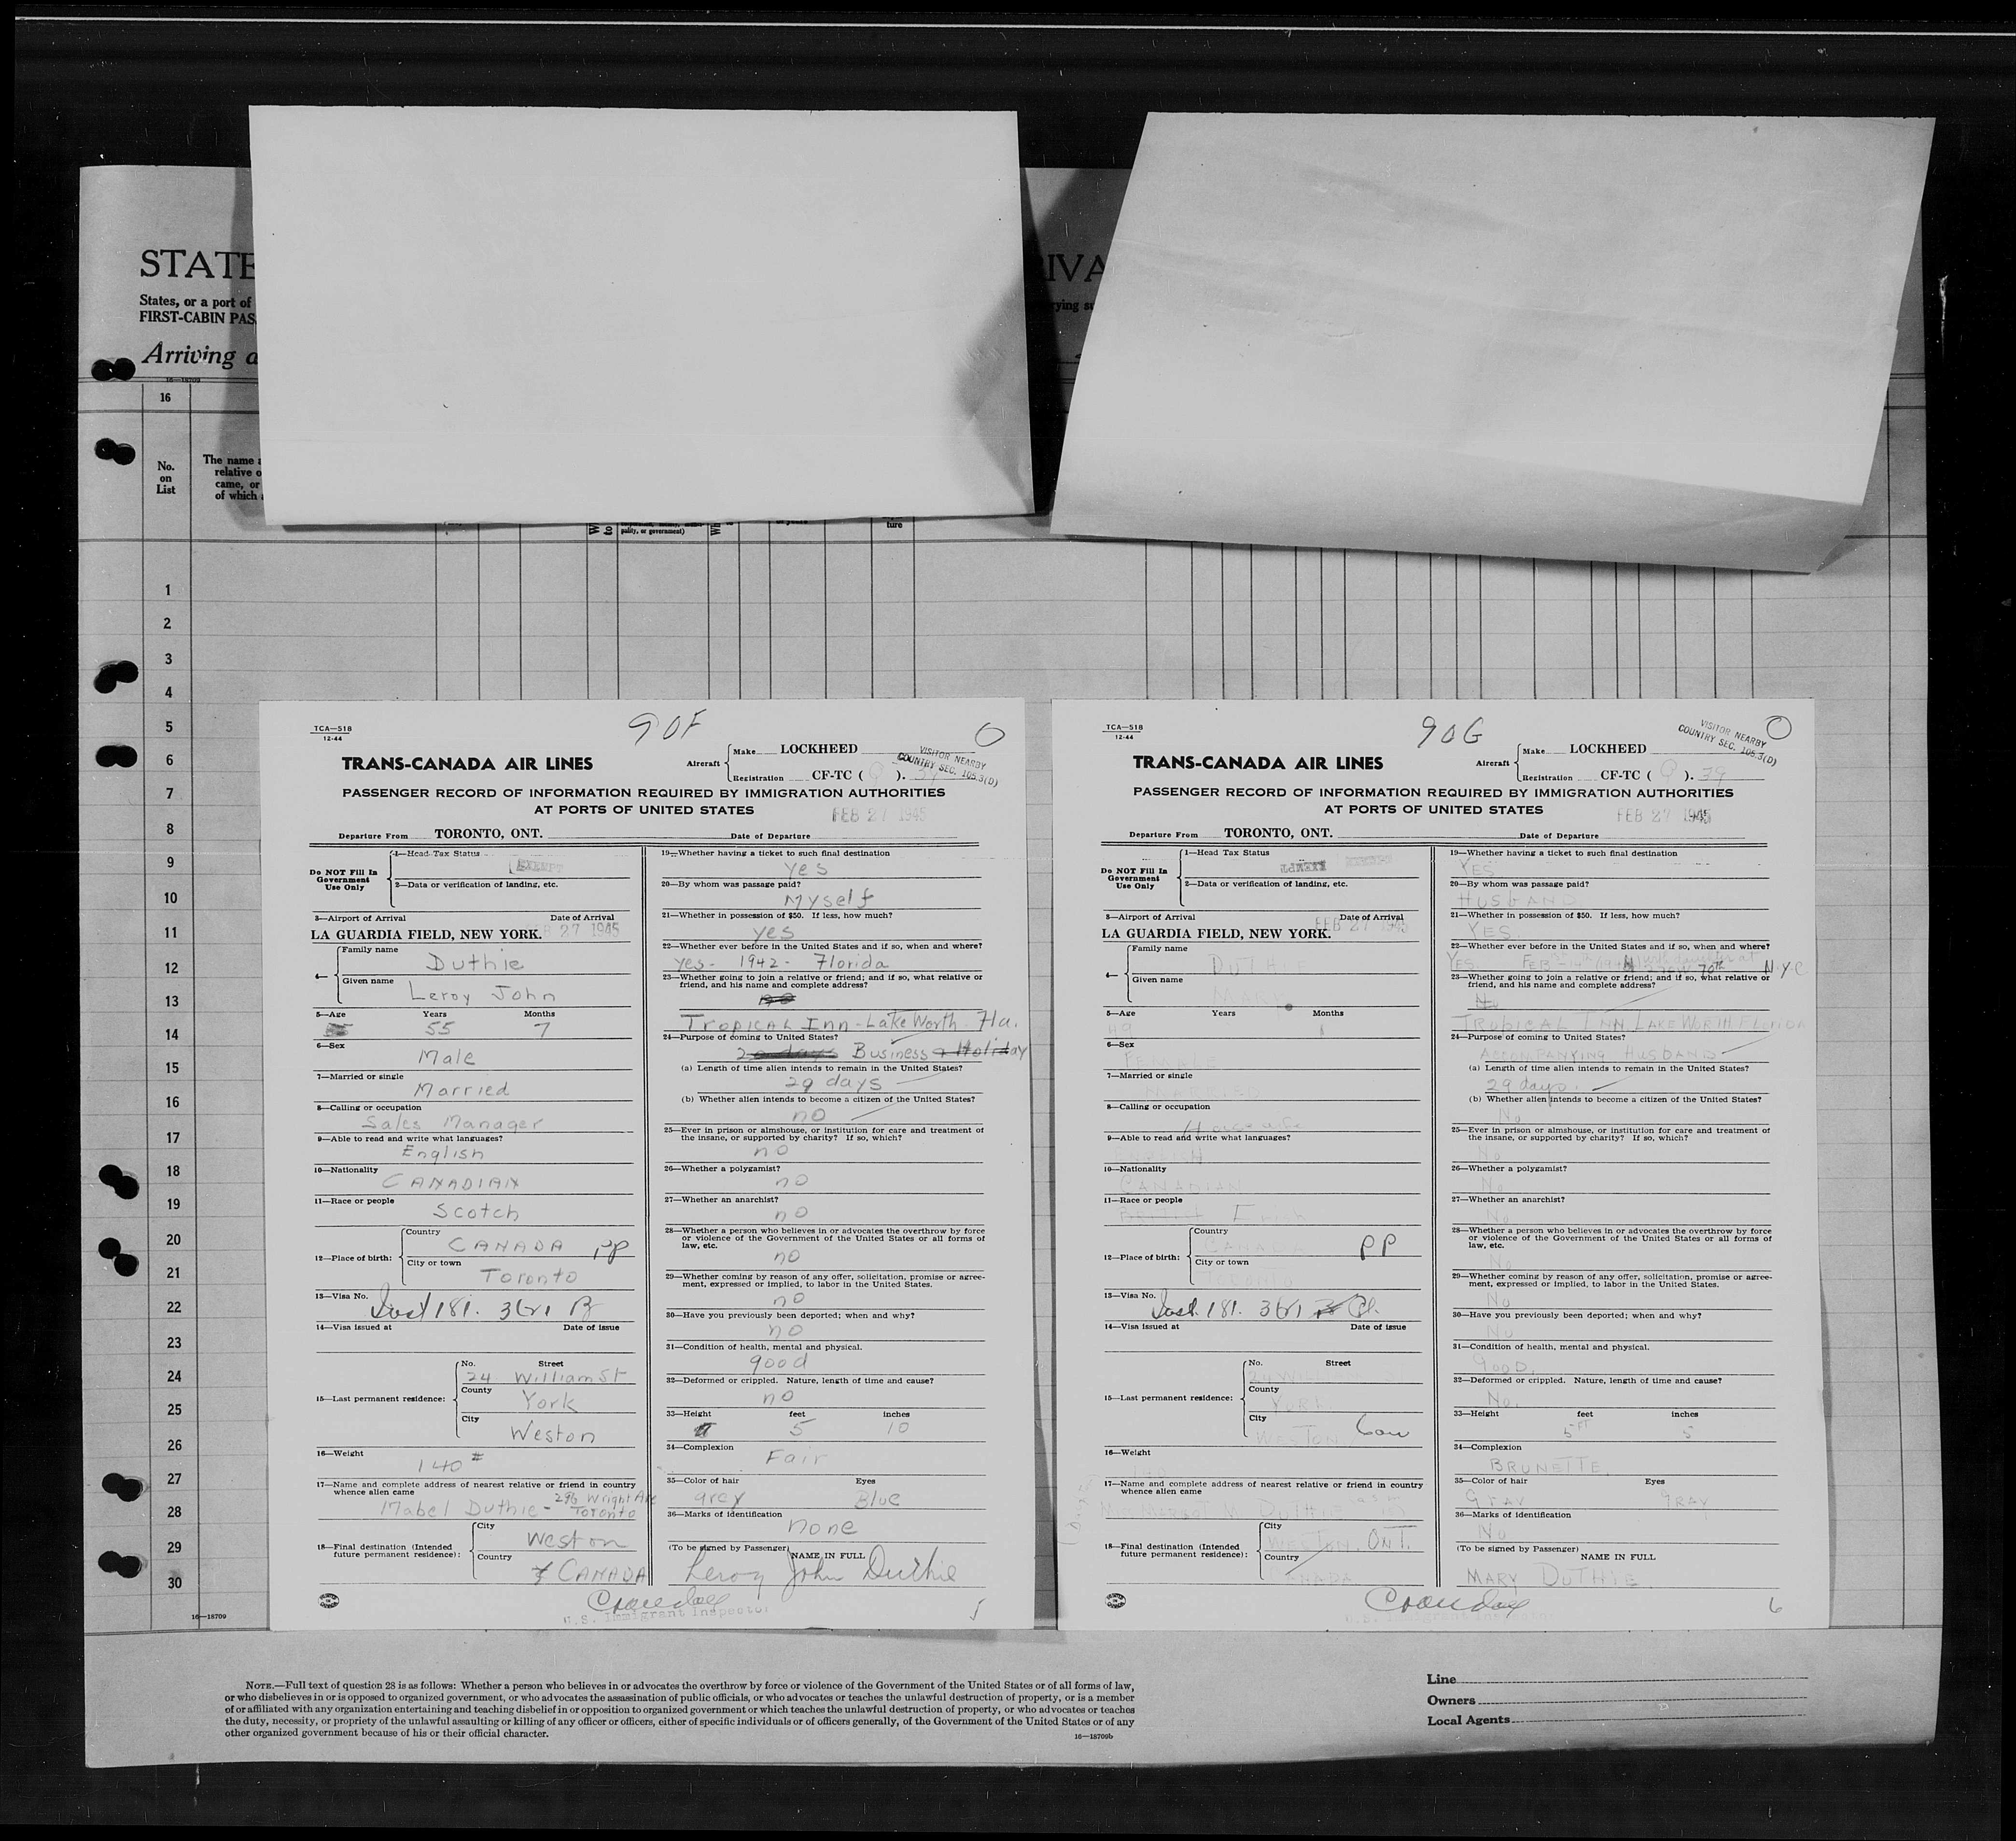 STATE
RIVA
States, or a port of
rying su
FIRST-CABIN PAS
Arriving a
16—18709
16
No.
on
List
The name a
relative o
came, or
of which a
pality, or government)
ture
1
2
3
4
5
6
7
8
9
10
11
12
13
14
15
16
17
18
19
20
21
22
23
24
25
26
27
28
29
30
16—18709
TCA—518
12-44
90F
VISITOR NEARBY
COUNTRY SEC. 105.3(D)
TRANS-CANADA AIR LINES
Aircraft
Make LOCKHEED
Registration CF-TC ( Q ). 39
PASSENGER RECORD OF INFORMATION REQUIRED BY IMMIGRATION AUTHORITIES
AT PORTS OF UNITED STATES
FEB 27 1945
Departure From TORONTO, ONT. Date of Departure
Do NOT Fill In
Government
Use Only
1—Head Tax Status
EXEMPT
2—Data or verification of landing, etc.
3—Airport of Arrival Date of Arrival
LA GUARDIA FIELD, NEW YORK. B 27 1945
4—
Family name
Duthie
Given name
Leroy John
5—Age Years Months
55 7
6—Sex
Male
7—Married or single
Married
8—Calling or occupation
Sales Manager
9—Able to read and write what languages?
English
10—Nationality
CANADIAN
11—Race or people
Scotch
12—Place of birth:
Country
CANADA PP
City or town
Toronto
13—Visa No.
Inst 181. 3(2)1
14—Visa issued at Date of issue
15—Last permanent residence:
No. Street
24 William St
County
York
City
Weston
16—Weight
140 #
17—Name and complete address of nearest relative or friend in country
whence alien came
Mabel Duthie - 296 Wright Ave
Toronto
18—Final destination (Intended
future permanent residence):
City
Weston
Country
CANADA
19—Whether having a ticket to such final destination
yes
20—By whom was passage paid?
Myself
21—Whether in possession of $50. If less, how much?
yes
22—Whether ever before in the United States and if so, when and where?
yes - 1942 - Florida
23—Whether going to join a relative or friend; and if so, what relative or
friend, and his name and complete address?
no
TROPICAL Inn - Lake Worth Fla.
24—Purpose of coming to United States?
Business & Holiday
(a) Length of time alien intends to remain in the United States?
29 days
(b) Whether alien intends to become a citizen of the United States?
no
25—Ever in prison or almshouse, or institution for care and treatment of
the insane, or supported by charity? If so, which?
no
26—Whether a polygamist?
no
27—Whether an anarchist?
no
28—Whether a person who believes in or advocates the overthrow by force
or violence of the Government of the United States or all forms of
law, etc.
no
29—Whether coming by reason of any offer, solicitation, promise or agree-
ment, expressed or implied, to labor in the United States.
no
30—Have you previously been deported; when and why?
no
31—Condition of health, mental and physical.
good
32—Deformed or crippled. Nature, length of time and cause?
no
33—Height feet inches
5 10
34—Complexion
Fair
35—Color of hair Eyes
grey Blue
36—Marks of identification
none
(To be signed by Passenger)
NAME IN FULL
Leroy John Duthie
U.S. Immigrant Inspector
5
TCA—518
12-44
90G
VISITOR NEARBY
COUNTRY SEC. 105.3(D)
TRANS-CANADA AIR LINES
Aircraft
Make LOCKHEED
Registration CF-TC ( Q ). 39
PASSENGER RECORD OF INFORMATION REQUIRED BY IMMIGRATION AUTHORITIES
AT PORTS OF UNITED STATES
FEB 27 1945
Departure From TORONTO, ONT. Date of Departure
Do NOT Fill In
Government
Use Only
1—Head Tax Status
EXEMPT
2—Data or verification of landing, etc.
3—Airport of Arrival Date of Arrival
LA GUARDIA FIELD, NEW YORK. FEB 27 1945
4—
Family name
DUTHIE
Given name
MARY
5—Age Years Months
49
6—Sex
FEMALE
7—Married or single
MARRIED
8—Calling or occupation
Housewife
9—Able to read and write what languages?
ENGLISH
10—Nationality
CANADIAN
11—Race or people
Irish
12—Place of birth:
Country
CANADA PP
City or town
TORONTO
13—Visa No.
Inst. 181. 3(2)1
14—Visa issued at Date of issue
15—Last permanent residence:
No. Street
24 WI
County
YORK
City
WESTON Can
16—Weight
17—Name and complete address of nearest relative or friend in country
whence alien came
DUTHIE
18—Final destination (Intended
future permanent residence):
City
WESTON, ONT.
Country
CANADA
19—Whether having a ticket to such final destination
YES
20—By whom was passage paid?
HUSBAND
21—Whether in possession of $50. If less, how much?
YES
22—Whether ever before in the United States and if so, when and where?
YES. FEB 70th N.Y.C
23—Whether going to join a relative or friend; and if so, what relative or
friend, and his name and complete address?
No
TROPICAL INN, LAKE WORTH FLORIDA
24—Purpose of coming to United States?
ACCOMPANYING HUSBAND
(a) Length of time alien intends to remain in the United States?
29 days.
(b) Whether alien intends to become a citizen of the United States?
No
25—Ever in prison or almshouse, or institution for care and treatment of
the insane, or supported by charity? If so, which?
No
26—Whether a polygamist?
No
27—Whether an anarchist?
No
28—Whether a person who believes in or advocates the overthrow by force
or violence of the Government of the United States or all forms of
law, etc.
No
29—Whether coming by reason of any offer, solicitation, promise or agree-
ment, expressed or implied, to labor in the United States.
No
30—Have you previously been deported; when and why?
No
31—Condition of health, mental and physical.
GOOD.
32—Deformed or crippled. Nature, length of time and cause?
No.
33—Height feet inches
5 FT 5
34—Complexion
BRUNETTE
35—Color of hair Eyes
GRAY GRAY
36—Marks of identification
No
(To be signed by Passenger)
NAME IN FULL
MARY DUTHIE
6
NOTE.—Full text of question 28 is as follows: Whether a person who believes in or advocates the overthrow by force or violence of the Government of the United States or of all forms of law,
or who disbelieves in or is opposed to organized government, or who advocates the assassination of public officials, or who advocates or teaches the unlawful destruction of property, or is a member
of or affiliated with any organization entertaining and teaching disbelief in or opposition to organized government or which teaches the unlawful destruction of property, or who advocates or teaches
the duty, necessity, or propriety of the unlawful assaulting or killing of any officer or officers, either of specific individuals or of officers generally, of the Government of the United States or of any
other organized government because of his or their official character.
16—18709b
Line
Owners
Local Agents